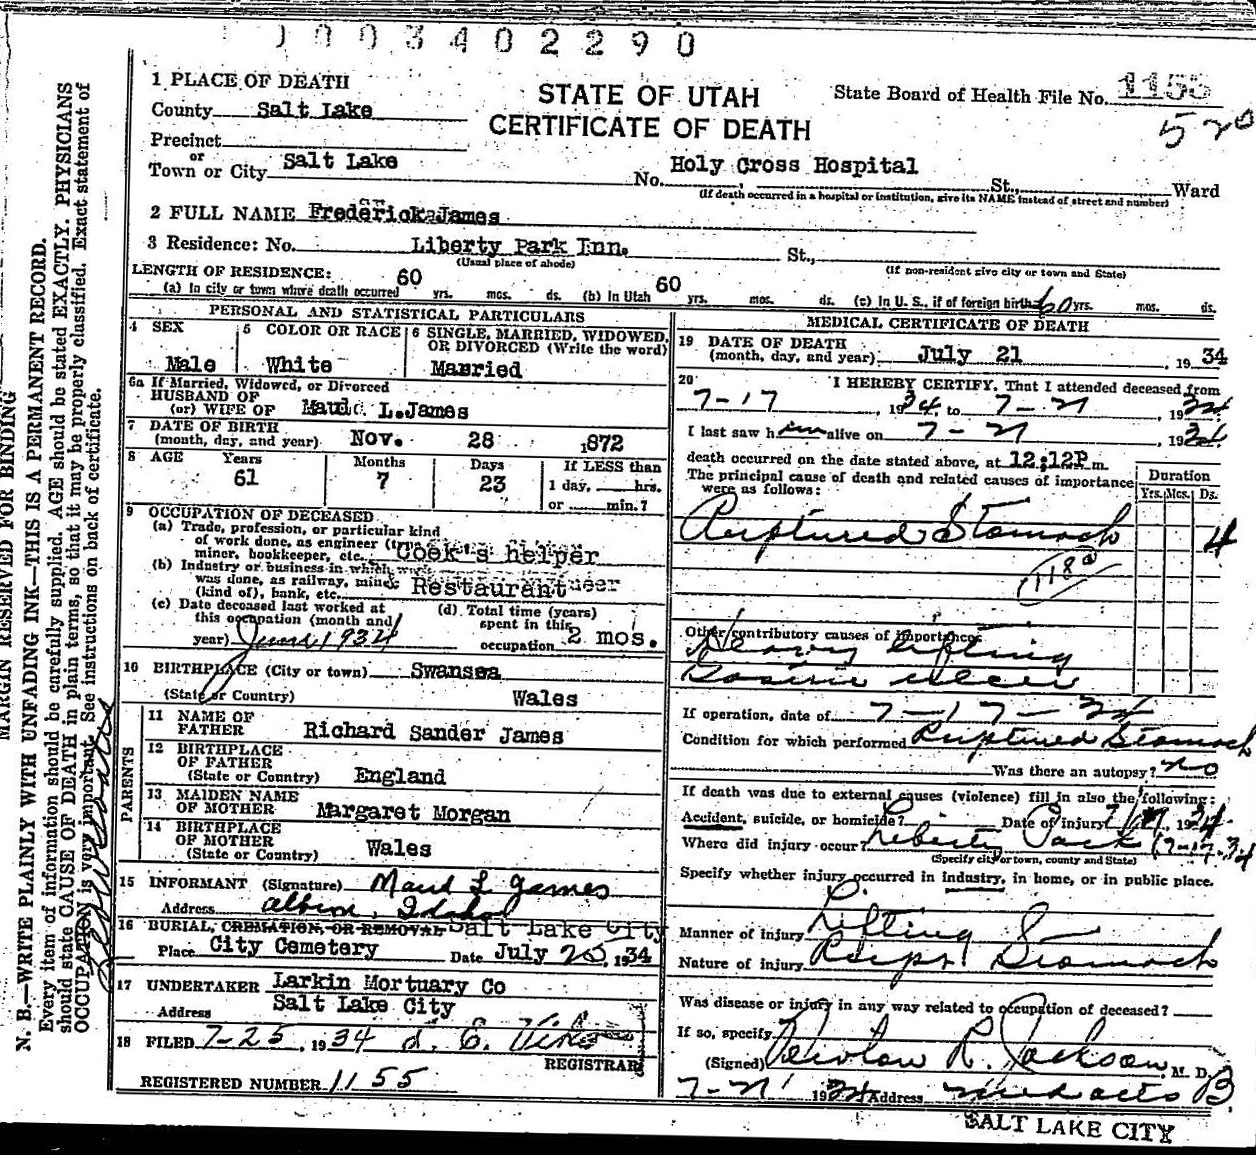 1003402290
1 PLACE OF DEATH
STATE OF UTAH
CERTIFICATE OF DEATH
State Board of Health File No. 1155
520
County Salt Lake
Precinct
or
Town or City Salt Lake No. Holy Cross Hospital St., Ward
(If death occurred in a hospital or institution, give its NAME instead of street and number)
2 FULL NAME Frederick James
3 Residence: No. Liberty Park Inn. St.,
(Usual place of abode) (If non-resident give city or town and State)
LENGTH OF RESIDENCE:
(a) In city or town where death occurred 60 yrs. mos. ds. (b) In Utah 60 yrs. mos. ds. (c) In U. S., if of foreign birth 60 yrs. mos. ds.
PERSONAL AND STATISTICAL PARTICULARS
4 SEX
Male
5 COLOR OR RACE
White
6 SINGLE, MARRIED, WIDOWED,
OR DIVORCED (Write the word)
Married
6a If Married, Widowed, or Divorced
HUSBAND OF
(or) WIFE OF Maud L. James
7 DATE OF BIRTH
(month, day, and year) Nov. 28 1872
8 AGE Years Months Days If LESS than
61 7 23 1 day, hrs.
or min.?
9 OCCUPATION OF DECEASED
(a) Trade, profession, or particular kind
of work done, as engineer (type
miner, bookkeeper, etc. Cook's helper
(b) Industry or business in which work
was done, as railway, mine
(kind of), bank, etc. Restaurant
(c) Date deceased last worked at
this occupation (month and
year) June 1934
(d) Total time (years)
spent in this
occupation 2 mos.
10 BIRTHPLACE (City or town) Swansea
(State or Country) Wales
PARENTS
11 NAME OF
FATHER Richard Sander James
12 BIRTHPLACE
OF FATHER
(State or Country) England
13 MAIDEN NAME
OF MOTHER Margaret Morgan
14 BIRTHPLACE
OF MOTHER
(State or Country) Wales
15 INFORMANT (Signature) Maud L James
Address Albion, Idaho
16 BURIAL, CREMATION, OR REMOVAL Salt Lake City
Place City Cemetery Date July 25, 1934
17 UNDERTAKER Larkin Mortuary Co
Address Salt Lake City
18 FILED 7-25, 1934
REGISTRAR
REGISTERED NUMBER 1155
MEDICAL CERTIFICATE OF DEATH
19 DATE OF DEATH
(month, day, and year) July 21, 1934
20 I HEREBY CERTIFY, That I attended deceased from
7-17, 1934, to 7-21, 1934
I last saw him alive on 7-21, 1934
death occurred on the date stated above, at 12:12P m.
The principal cause of death and related causes of importance
were as follows:
Duration
Yrs. Mos. Ds.
Ruptured Stomach 4
118a
Other contributory causes of importance:
Heavy lifting
If operation, date of 7-17-34
Condition for which performed Ruptured Stomach
Was there an autopsy? no
If death was due to external causes (violence) fill in also the following:
Accident, suicide, or homicide? Date of injury 7/17, 1934
Where did injury occur? Liberty Park (7-17-34
(Specify city or town, county and State)
Specify whether injury occurred in industry, in home, or in public place.
Manner of injury Lifting
Nature of injury Rupt Stomach
Was disease or injury in any way related to occupation of deceased?
If so, specify
(Signed) R. Jackson, M. D.
7-21 1934 Address Med Arts B
SALT LAKE CITY
MARGIN RESERVED FOR BINDING
N. B.—WRITE PLAINLY WITH UNFADING INK—THIS IS A PERMANENT RECORD.
Every item of information should be carefully supplied. AGE should be stated EXACTLY. PHYSICIANS
should state CAUSE OF DEATH in plain terms, so that it may be properly classified. Exact statement of
OCCUPATION is very important. See instructions on back of certificate.